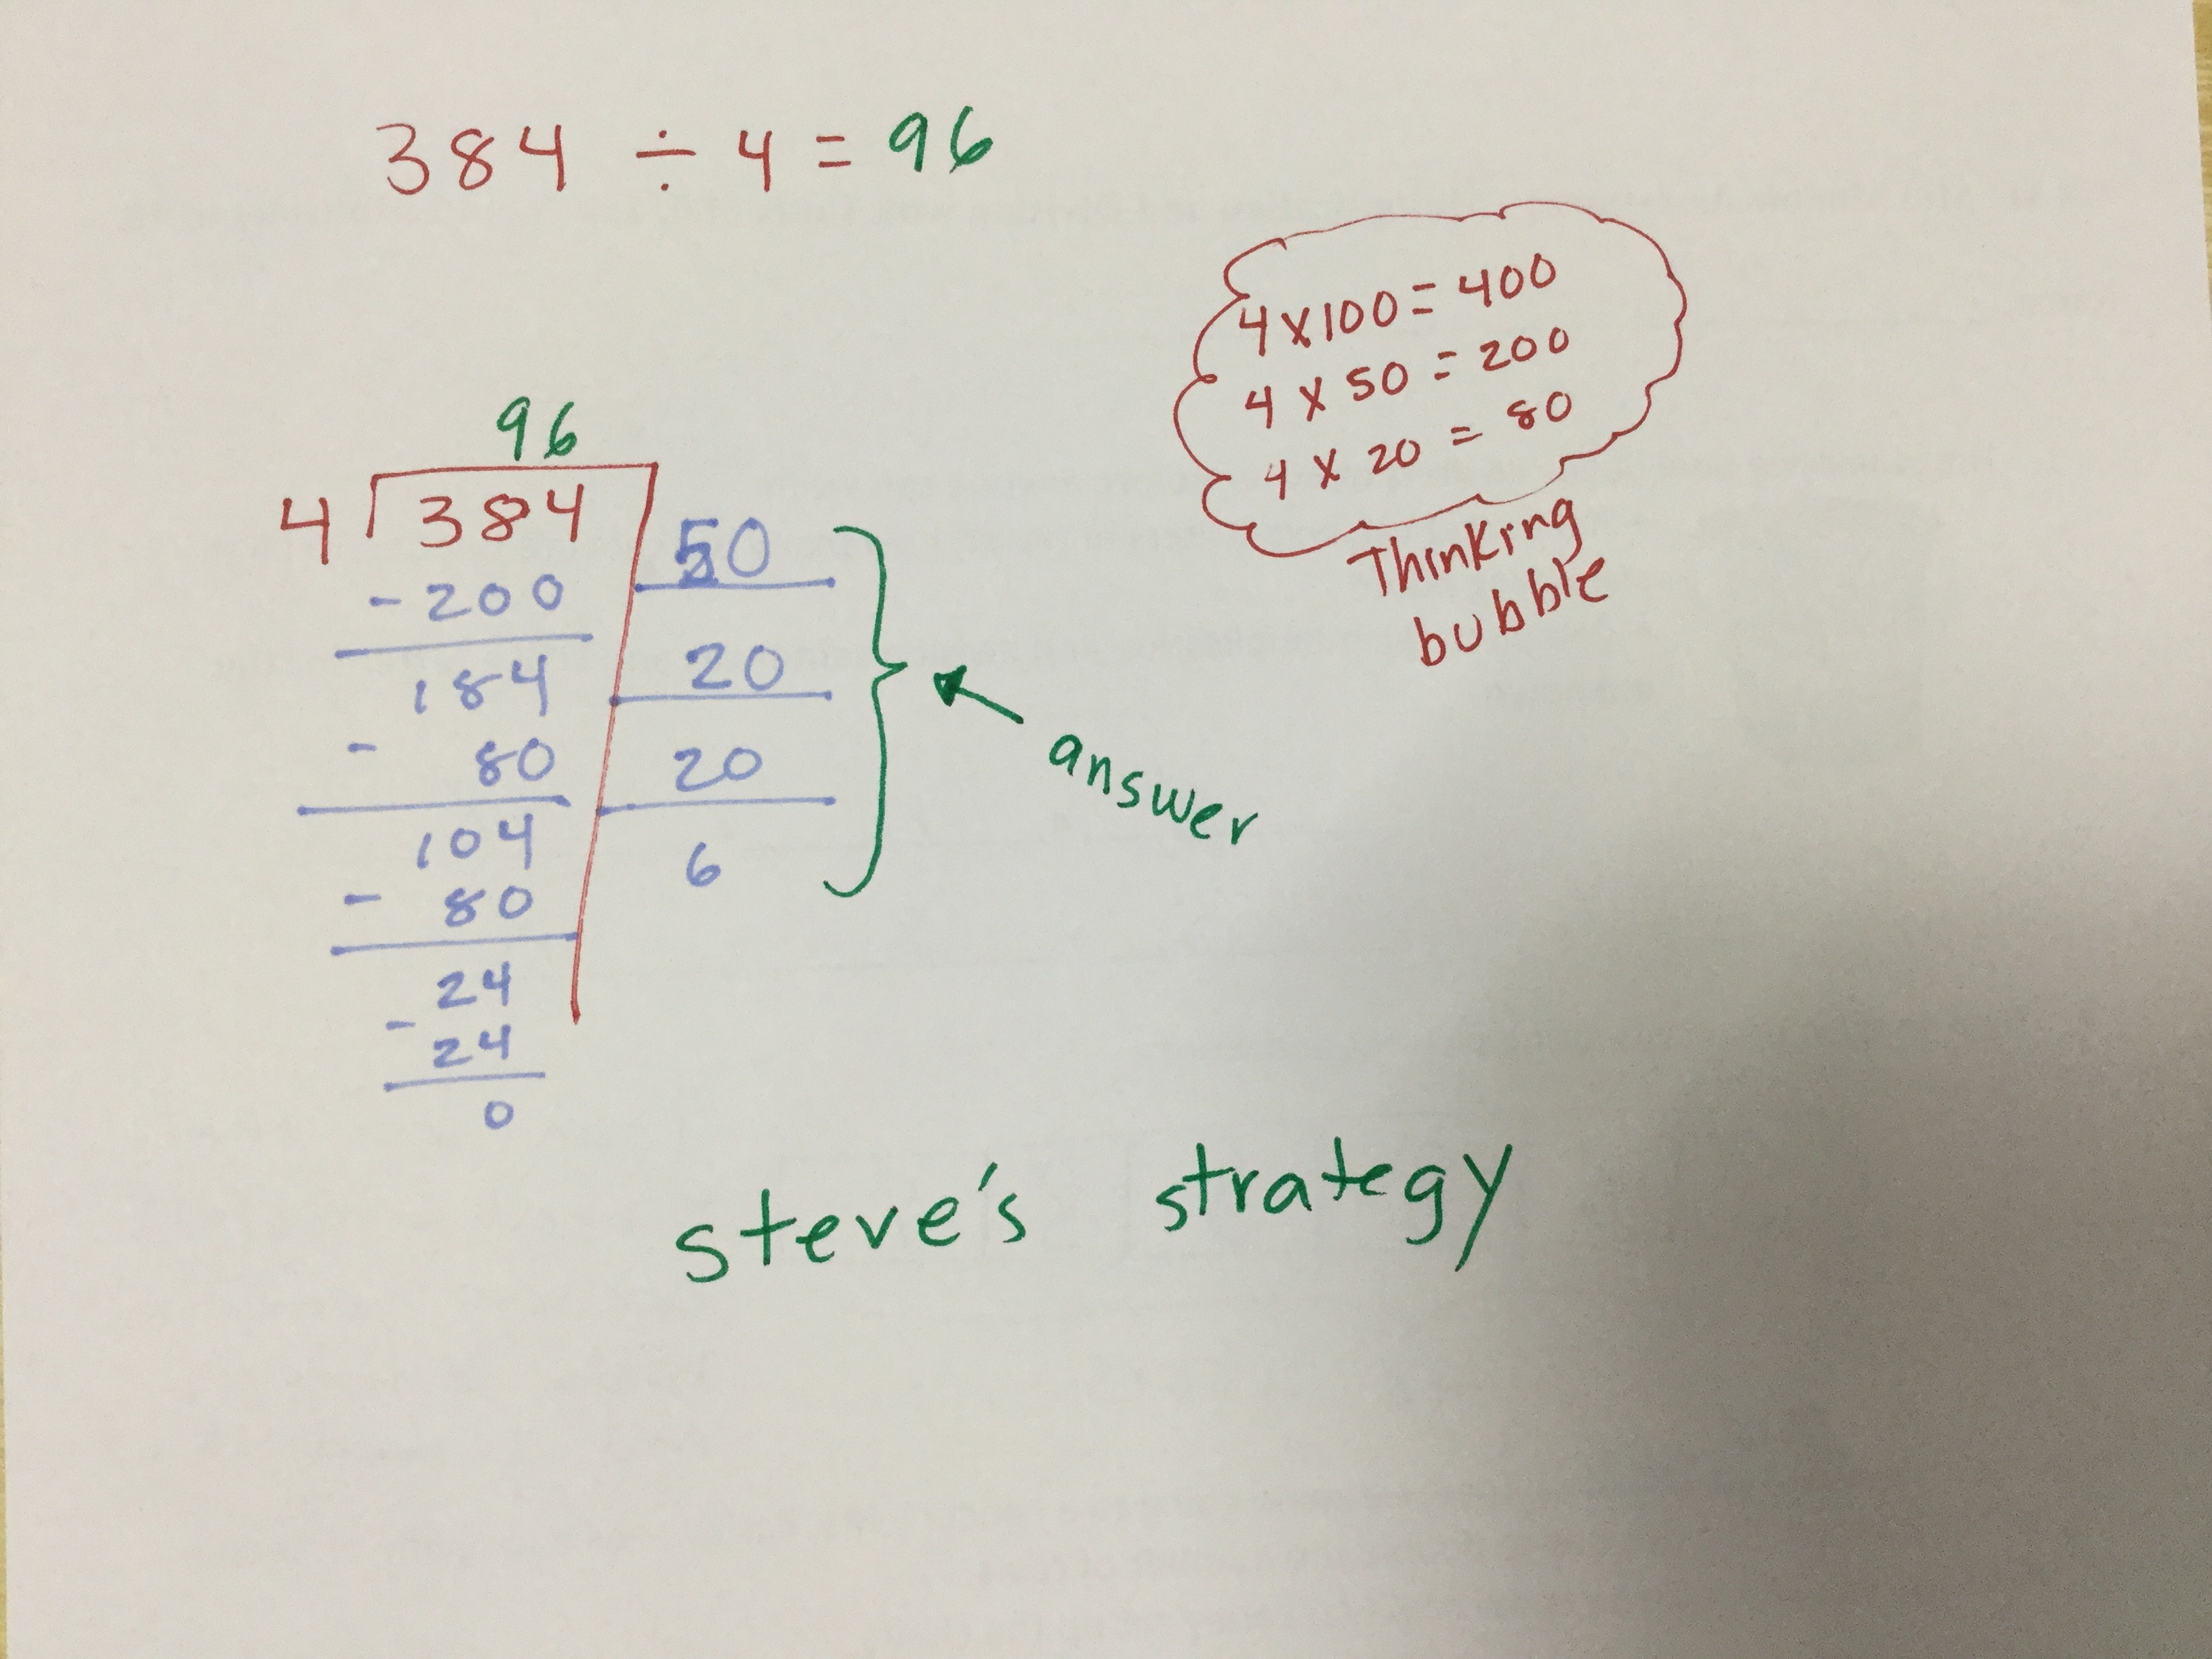 384 ÷ 4 = 96
4 x 100 = 400
4 x 50 = 200
4 x 20 = 80
Thinking
bubble
96
4 384
- 200 50
184 20
- 80 20
104 6
- 80
24
- 24
0
answer
steve's strategy